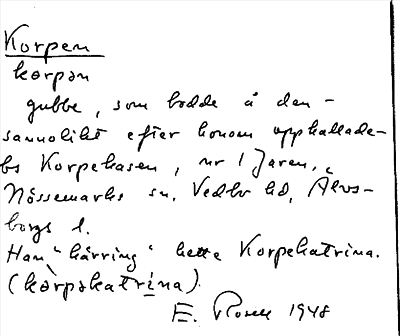 Korpen
kɵrpən
gubbe, som bodde å den -
sannolikt efter honom uppkallade-
bs Korpekasen, nr 1 Jaren,
Nössemarks sn, Vedbo hd, Älvs-
borgs l.
Han "kärring" hette Korpekatrina.
(kɵrpəkatrina).
E. Rosell 1948